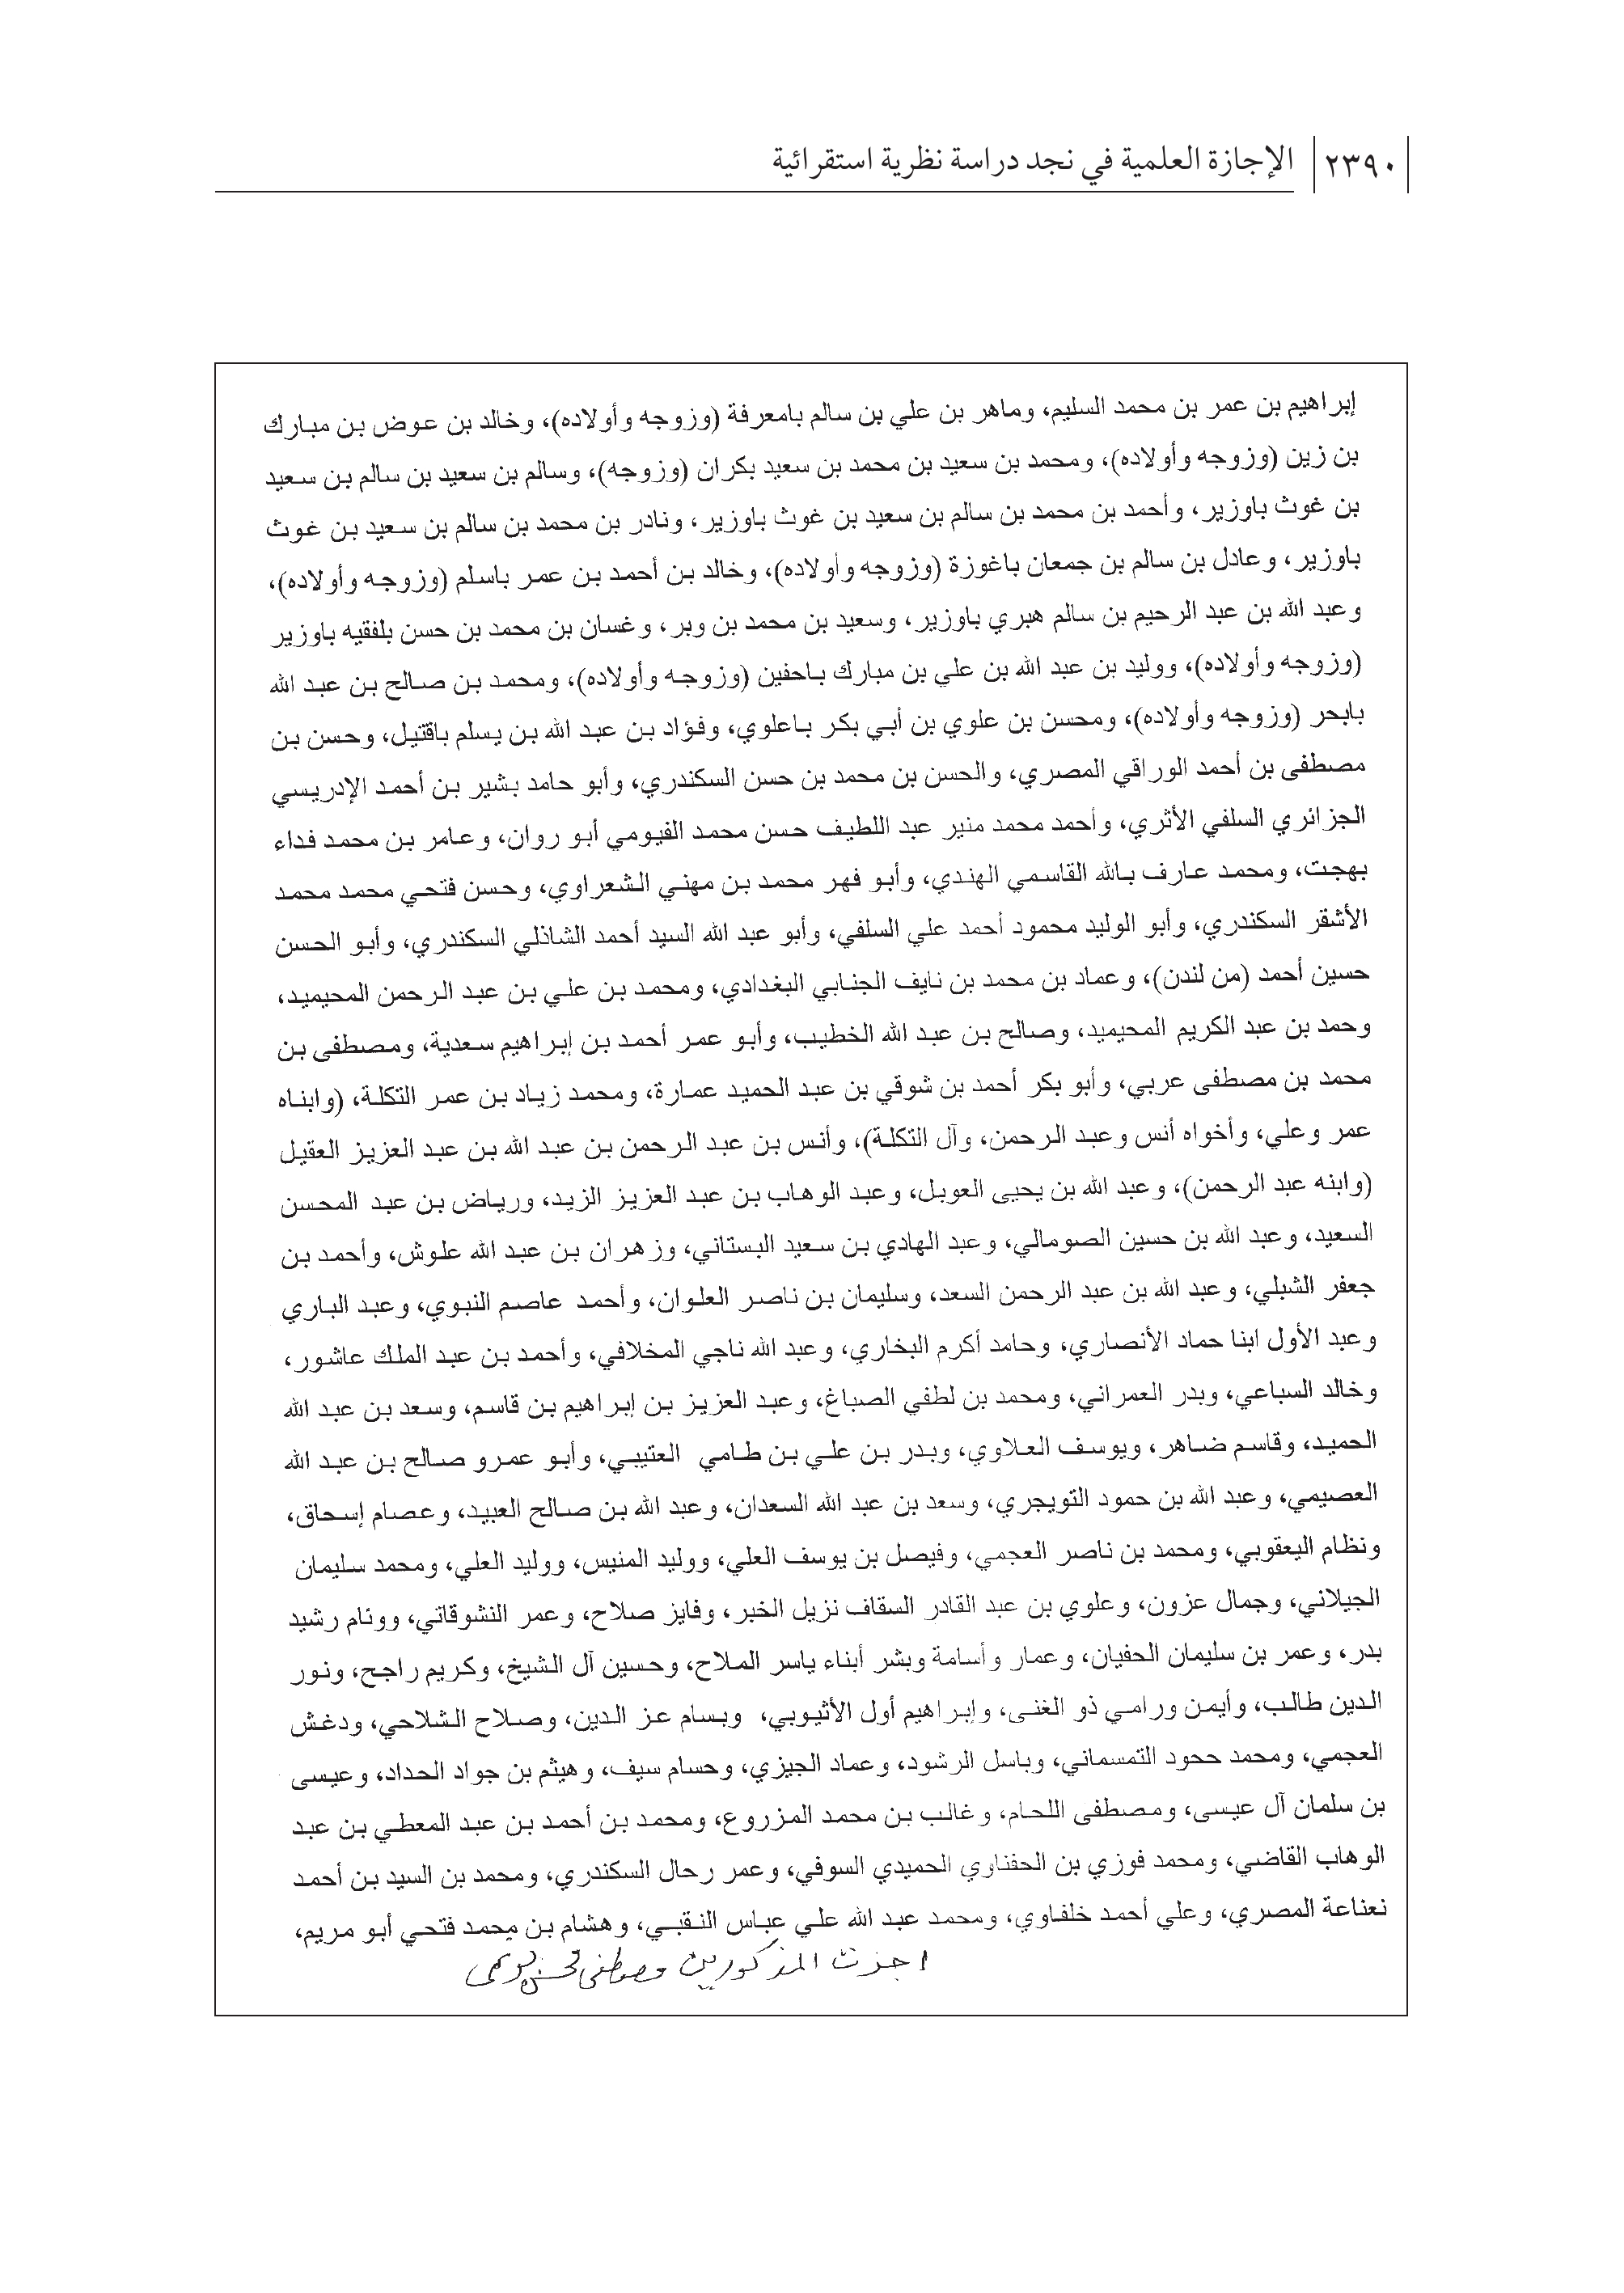 ٢٣٩٠ الإجازة العلمية في نجد دراسة نظرية استقرائية
إبراهيم بن عمر بن محمد السليم، وماهر بن علي بن سالم بامعرفة (وزوجه وأولاده)، وخالد بن عوض بن مبارك
بن زين (وزوجه وأولاده)، ومحمد بن سعيد بن محمد بن سعيد بكران (وزوجه)، وسالم بن سعيد بن سالم بن سعيد
بن غوث باوزير، وأحمد بن محمد بن سالم بن سعيد بن غوث باوزير، ونادر بن محمد بن سالم بن سعيد بن غوث
باوزير، وعادل بن سالم بن جمعان باغوزة (وزوجه وأولاده)، وخالد بن أحمد بن عمر باسلم (وزوجه وأولاده)،
وعبد الله بن عبد الرحيم بن سالم هبري باوزير، وسعيد بن محمد بن وبر، وغسان بن محمد بن حسن بلفقيه باوزير
(وزوجه وأولاده)، ووليد بن عبد الله بن علي بن مبارك باحفين (وزوجه وأولاده)، ومحمد بن صالح بن عبد الله
بابحر (وزوجه وأولاده)، ومحسن بن علوي بن أبي بكر باعلوي، وفؤاد بن عبد الله بن يسلم باقتيل، وحسن بن
مصطفى بن أحمد الوراقي المصري، والحسن بن محمد بن حسن السكندري، وأبو حامد بشير بن أحمد الإدريسي
الجزائري السلفي الأثري، وأحمد محمد منير عبد اللطيف حسن محمد الفيومي أبو روان، وعامر بن محمد فداء
بهجت، ومحمد عارف بالله القاسمي الهندي، وأبو فهر محمد بن مهني الشعراوي، وحسن فتحي محمد محمد
الأشقر السكندري، وأبو الوليد محمود أحمد علي السلفي، وأبو عبد الله السيد أحمد الشاذلي السكندري، وأبو الحسن
حسين أحمد (من لندن)، وعماد بن محمد بن نايف الجنابي البغدادي، ومحمد بن علي بن عبد الرحمن المحيميد،
وحمد بن عبد الكريم المحيميد، وصالح بن عبد الله الخطيب، وأبو عمر أحمد بن إبراهيم سعدية، ومصطفى بن
محمد بن مصطفى عربي، وأبو بكر أحمد بن شوقي بن عبد الحميد عمارة، ومحمد زياد بن عمر التكلة، (وابناه
عمر وعلي، وأخواه أنس وعبد الرحمن، وآل التكلة)، وأنس بن عبد الرحمن بن عبد الله بن عبد العزيز العقيل
(وابنه عبد الرحمن)، وعبد الله بن يحيى العوبل، وعبد الوهاب بن عبد العزيز الزيد، ورياض بن عبد المحسن
السعيد، وعبد الله بن حسين الصومالي، وعبد الهادي بن سعيد البستاني، وزهران بن عبد الله علوش، وأحمد بن
جعفر الشبلي، وعبد الله بن عبد الرحمن السعد، وسليمان بن ناصر العلوان، وأحمد عاصم النبوي، وعبد الباري
وعبد الأول ابنا حماد الأنصاري، وحامد أكرم البخاري، وعبد الله ناجي المخلافي، وأحمد بن عبد الملك عاشور،
وخالد السباعي، وبدر العمراني، ومحمد بن لطفي الصباغ، وعبد العزيز بن إبراهيم بن قاسم، وسعد بن عبد الله
الحميد، وقاسم ضاهر، ويوسف العلاوي، وبدر بن علي بن طامي العتيبي، وأبو عمرو صالح بن عبد الله
العصيمي، وعبد الله بن حمود التويجري، وسعد بن عبد الله السعدان، وعبد الله بن صالح العبيد، وعصام إسحاق،
ونظام اليعقوبي، ومحمد بن ناصر العجمي، وفيصل بن يوسف العلي، ووليد المنيس، ووليد العلي، ومحمد سليمان
الجيلاني، وجمال عزون، وعلوي بن عبد القادر السقاف نزيل الخبر، وفايز صلاح، وعمر النشوقاتي، ووئام رشيد
بدر، وعمر بن سليمان الحفيان، وعمار وأسامة وبشر أبناء ياسر الملاح، وحسين آل الشيخ، وكريم راجح، ونور
الدين طالب، وأيمن ورامي ذو الغنى، وإبراهيم أول الأثيوبي، وبسام عز الدين، وصلاح الشلاحي، ودغش
العجمي، ومحمد ححود التمسماني، وباسل الرشود، وعماد الجيزي، وحسام سيف، وهيثم بن جواد الحداد، وعيسى
بن سلمان آل عيسى، ومصطفى اللحام، وغالب بن محمد المزروع، ومحمد بن أحمد بن عبد المعطي بن عبد
الوهاب القاضي، ومحمد فوزي بن الحفناوي الحميدي السوفي، وعمر رحال السكندري، ومحمد بن السيد بن أحمد
نعناعة المصري، وعلي أحمد خلفاوي، ومحمد عبد الله علي عباس النقبي، وهشام بن محمد فتحي أبو مريم،
اجزت المذكورين مصطفى